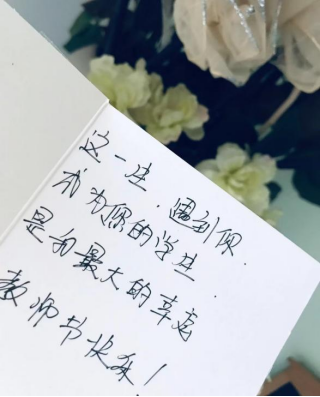 这一生，遇到你.
成为你的学生.
是我最大的幸运
教师节快乐！